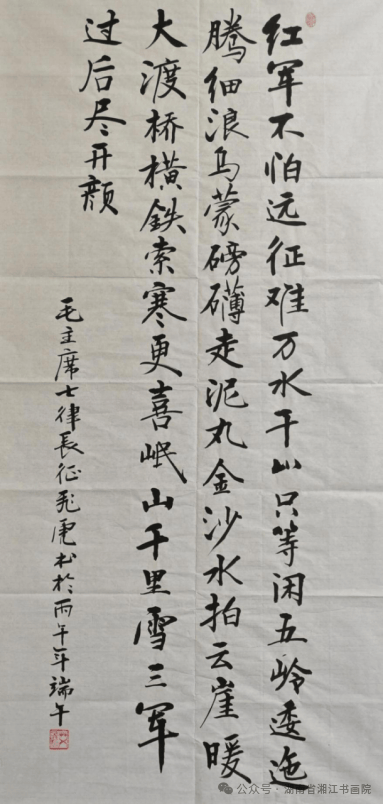 红军不怕远征难万水千山只等闲五岭逶迤
腾细浪乌蒙磅礴走泥丸金沙水拍云崖暖
大渡桥横鉄索寒更喜岷山千里雪三军
过后尽开颜
毛主席七律長征书於丙午年端午
公众号·湖南省湘江书画院